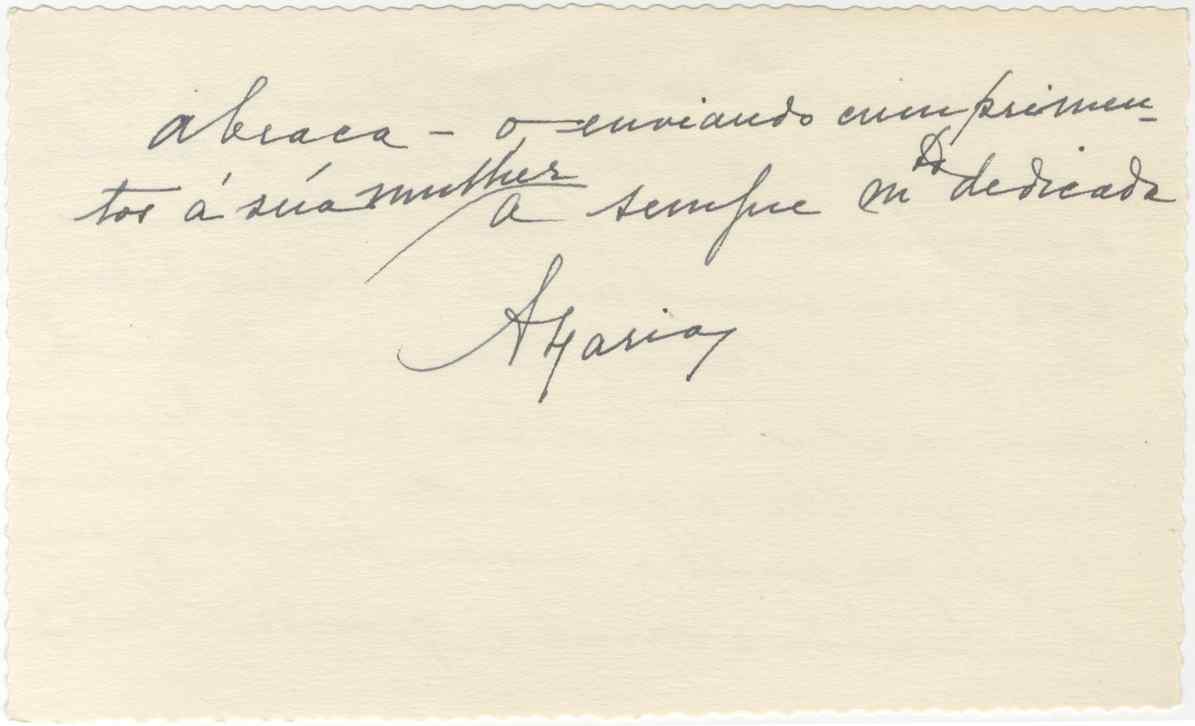 abraca - o enviando cumprimen-
tos á súa mulher a sempre mto dedicada